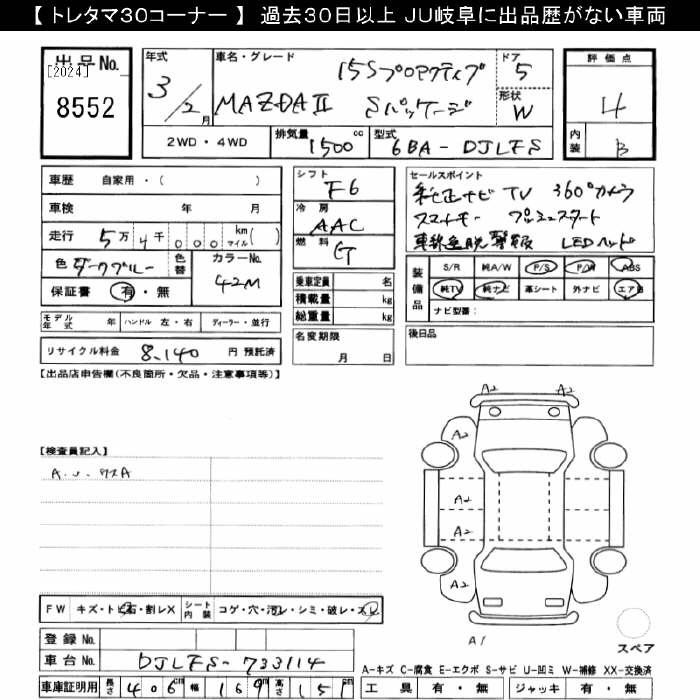 【 トレタマ30コーナー 】 過去30日以上 JU岐阜に出品歴がない車両
出品No.
[2024]
8552
年式
3/2月
車名・グレード
15Sプロアクティブ
MAZDAⅡ Sパッケージ
ドア
5
形状
W
評価点
4
内装
B
2WD・4WD
排気量
1500 cc
型式
6BA-DJLFS
車歴 自家用・( )
車検 年 月
走行 5万4千000 km マイル( )
色 ダークブルー
色替
カラーNo.
42M
保証書 有・無
モデル年式 年 ハンドル 左・右 ディーラー・並行
リサイクル料金 8,140 円 預託済
シフト
F6
冷房
AAC
燃料
G
乗車定員 名
積載量 kg
総重量 kg
名変期限
月 日
セールスポイント
純正ナビ TV 360°カメラ
スマートキー プッシュスタート
車線逸脱警報 LEDヘッド
装備品
S/R 純A/W P/S P/W ABS
純TV 純ナビ 革シート 外ナビ エアB
ナビ型番:
後日品
【出品店申告欄(不良箇所・欠品・注意事項等)】
【検査員記入】
A.U.ワスA
A2
A2
A2
A2
A2
A2
A1
スペア
FW キズ・トビ石・割レX シート内装 コゲ・穴・汚レ・シミ・破レ・スレ
登録 No.
車台 No. DJLFS-733114
車庫証明用 長さ 406cm 幅 169cm 高さ 151cm
A-キズ C-腐食 E-エクボ S-サビ U-凹ミ W-補修 XX-交換済
工具 有・無 ジャッキ 有・無